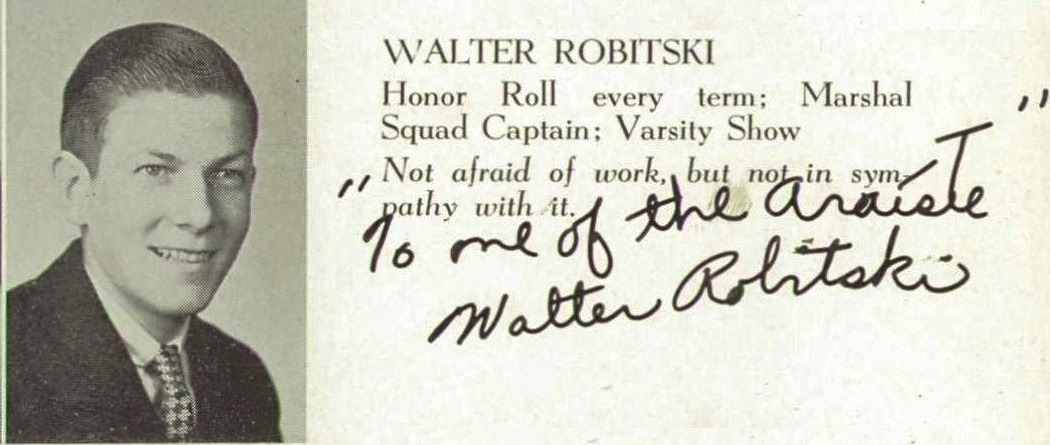 WALTER ROBITSKI
Honor Roll every term; Marshal
Squad Captain; Varsity Show
Not afraid of work, but not in sym-
pathy with it.
"To one of the "
Walter Robitski